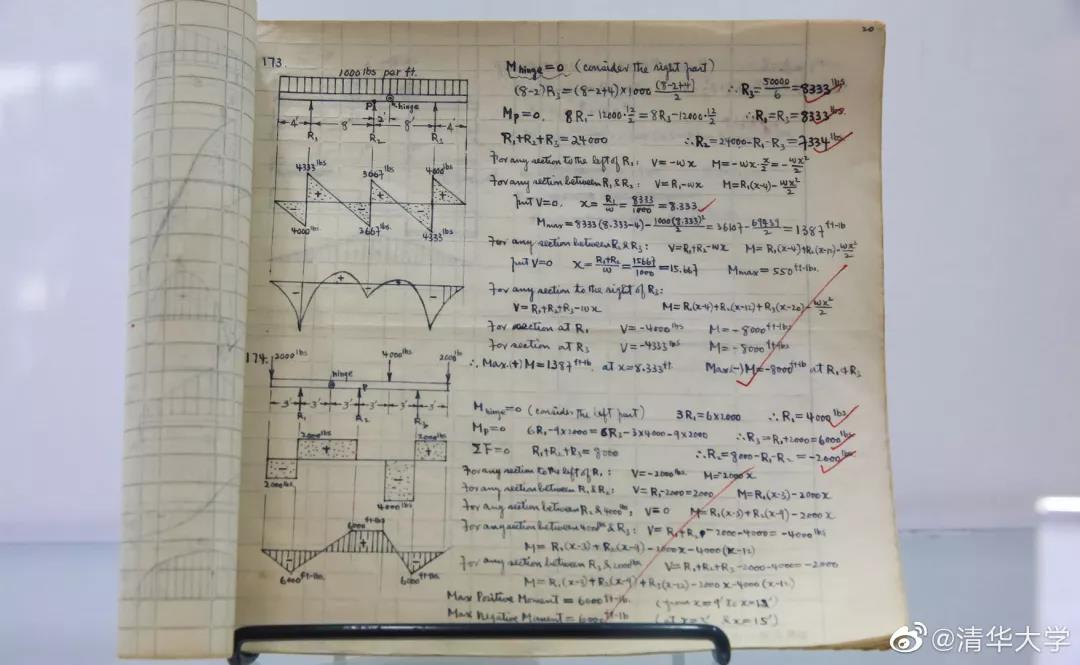 20
173.
1000 lbs per ft.
hinge
P
2'
4' 8' 8' 4'
R₁ R₂ R₃
4333 lbs
3667 lbs
4000 lbs
+ + +
4000 lbs.
3667 lbs
4333 lbs
− + −
M hinge=0 (consider the right part)
(8-2)R₃=(8-2+4)×1000 (8-2+4)/2 ∴R₃=50000/6=8333 lbs
Mp=0. 8R₁-12000·12/2=8R₃-12000·12/2 ∴R₁=R₃=8333 lbs.
R₁+R₂+R₃=24000 ∴R₂=24000-R₁-R₃=7334 lbs.
For any section to the left of R₁: V=-wx M=-wx·x/2=-wx²/2
For any section between R₁&R₂: V=R₁-wx M=R₁(x-4)-wx²/2
put V=0. x=R₁/w=8333/1000=8.333
Mmax=8333(8.333-4)-1000(8.333)²/2=36107-69439/2=1387 ft-lb
For any section between R₂&R₃: V=R₁+R₂-wx M=R₁(x-4)+R₂(x-12)-wx²/2
put V=0 x=R₁+R₂/w=15667/1000=15.667 Mmax=550 ft-lbs.
For any section to the right of R₃:
V=R₁+R₂+R₃-wx M=R₁(x-4)+R₂(x-12)+R₃(x-20)-wx²/2
For section at R₁ V=-4000 lbs M=-8000 ft-lbs
For section at R₃ V=-4333 lbs M=-8000 ft-lb
∴Max.(+)M=1387 ft-lb. at x=8.333 ft. Max(-)M=-8000 ft-lb at R₁&R₃
174.
2000 lbs 4000 lbs 2000 lb
hinge
P
3' 3' 3' 3' 3' 3'
R₁ R₂ R₃
2000 lbs 2000 lbs
+ +
− −
2000 lbs
4000 lbs
6000 ft-lbs
+
− −
6000 ft-lbs. 6000 ft-lbs.
M hinge=0 (consider the left part) 3R₁=6×2000 ∴R₁=4000 lbs
Mp=0 6R₁-9×2000=6R₃-3×4000-9×2000 ∴R₃=R₁+2000=6000 lbs
ΣF=0 R₁+R₂+R₃=8000 ∴R₂=8000-R₁-R₂=-2000 lbs.
For any section to the left of R₁: V=-2000 lbs. M=-2000x
For any section between R₁&R₂: V=R₁-2000=2000 M=R₁(x-3)-2000x
For any section between R₂&4000 lbs, V=0 M=R₁(x-3)+R₂(x-9)-2000x
For any section between 4000 lbs & R₃: V=R₁+R₂-2000-4000=-4000 lbs
M=R₁(x-3)+R₂(x-9)-2000x-4000(x-12)
For any section between R₃&2000 lbs V=R₁+R₂+R₃-2000-4000=-2000
M=R₁(x-3)+R₂(x-9)+R₃(x-12)-2000x-4000(x-12)
Max Positive Moment=6000 ft-lb. (from x=9' to x=12')
Max Negative Moment=6000 ft-lb (at x=3' & x=15')
@清华大学